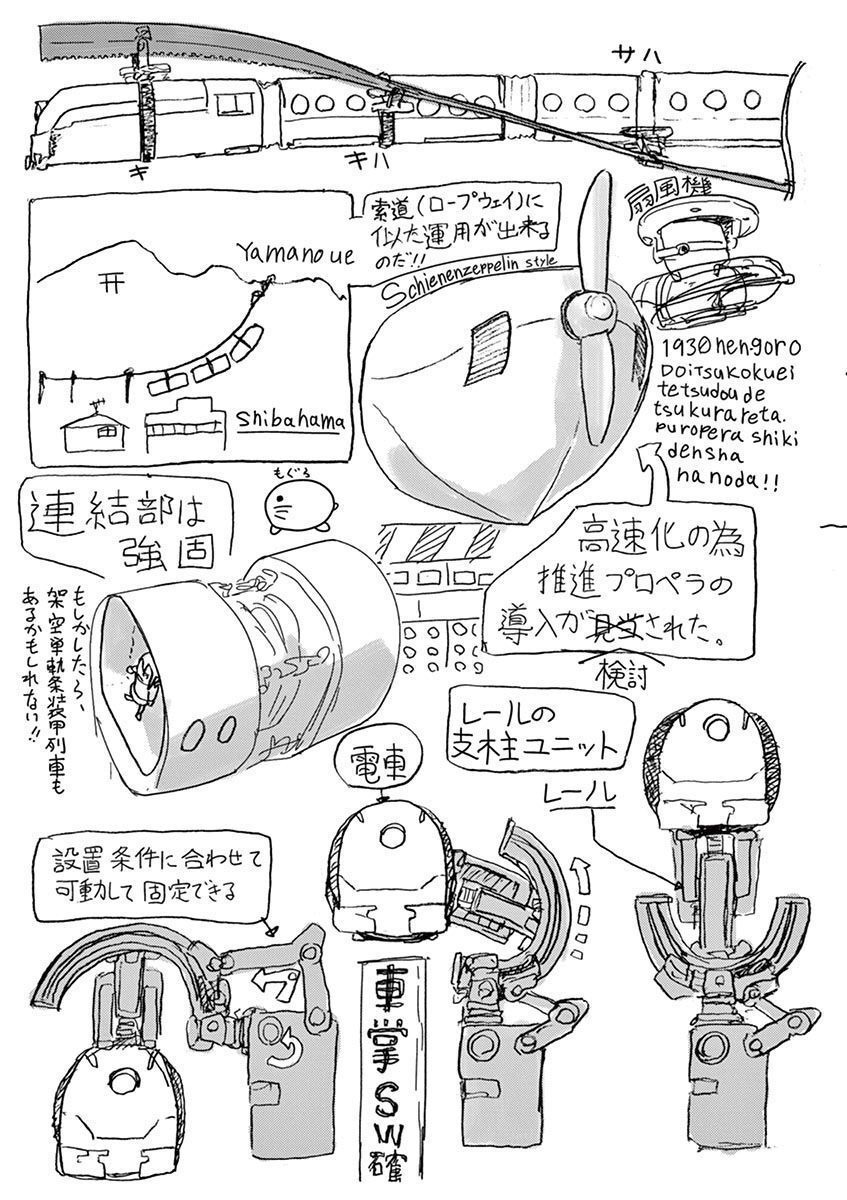 サハ
キ
キハ
索道(ロープウェイ)に
似た運用が出来る
のだ!!
扇風機
Yamanoue
Schienenzeppelin style
1930nengoro
DOITSUKOKUEI
tetsudoude
tsukurareta.
puropera shiki
densha
nanoda!!
Shibahama
もぐら
連結部は
強固
高速化の為
推進プロペラの
導入が見当された。
検討
もしかしたら、
架空単軌条装甲列車も
あるかもしれない!!
レールの
支柱ユニット
電車
レール
設置条件に合わせて
可動して固定できる
車掌SW確